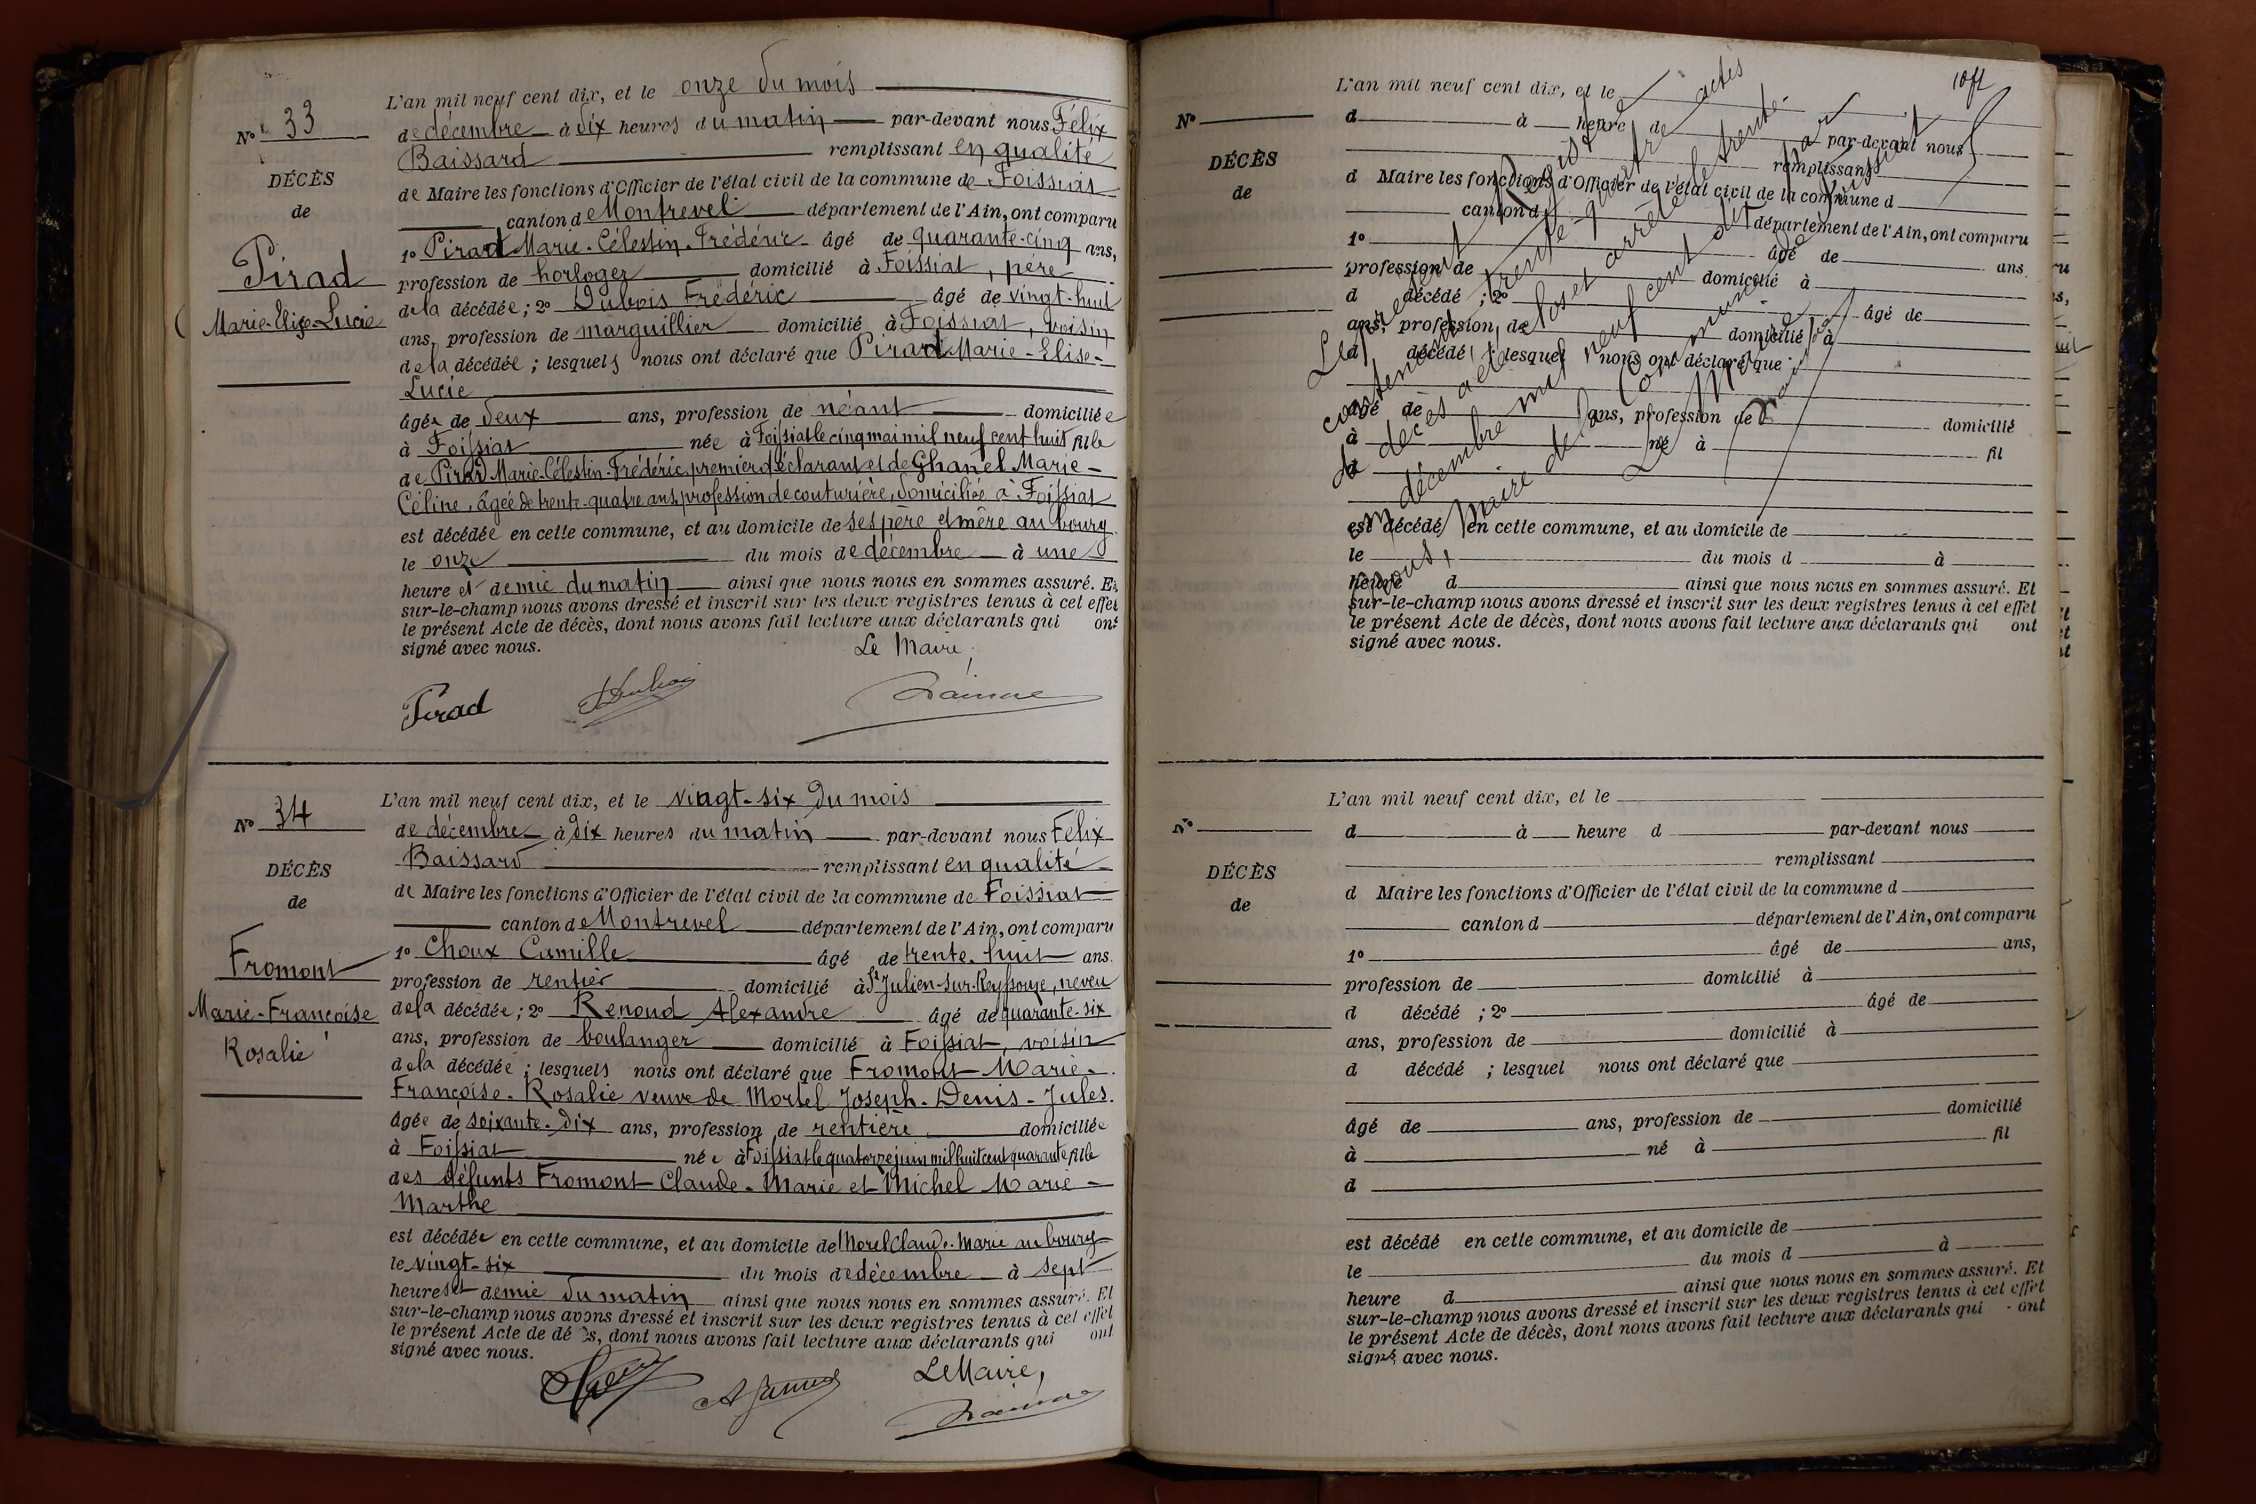 N° 33
DÉCÈS
de
Pirad
Marie-Elise-Lucie
L'an mil neuf cent dix, et le onze du mois
de décembre à dix heures du matin par-devant nous Félix
Baissard remplissant en qualité
de Maire les fonctions d'Officier de l'état civil de la commune de Foissiat
canton de Montrevel département de l'Ain, ont comparu
1° Pirad Marie-Célestin-Frédéric âgé de quarante-cinq ans,
profession de horloger domicilié à Foissiat, père
de la décédée; 2° Dubois Frédéric âgé de vingt-huit
ans, profession de marguillier domicilié à Foissiat, voisin
de la décédée ; lesquels nous ont déclaré que Pirad Marie-Elise-
Lucie
âgée de deux ans, profession de néant domiciliée
à Foissiat née à Foissiat le cinq mai mil neuf cent huit fille
de Pirad Marie-Célestin-Frédéric premier déclarant et de Chanel Marie-
Céline, âgée de trente-quatre ans, profession de couturière, domiciliée à Foissiat
est décédée en cette commune, et au domicile de ses père et mère au bourg
le onze du mois de décembre à une
heure et demie du matin ainsi que nous nous en sommes assuré. Et
sur-le-champ nous avons dressé et inscrit sur les deux registres tenus à cet effet
le présent Acte de décès, dont nous avons fait lecture aux déclarants qui ont
signé avec nous.
Le Maire,
Pirad Dubois
N° 34
DÉCÈS
de
Fromont
Marie-Françoise
Rosalie
L'an mil neuf cent dix, et le vingt-six du mois
de décembre à dix heures du matin par-devant nous Félix
Baissard remplissant en qualité
de Maire les fonctions d'Officier de l'état civil de la commune de Foissiat
canton de Montrevel département de l'Ain, ont comparu
1° Choux Camille âgé de trente-huit ans.
profession de rentier domicilié à St Julien-sur-Reyssouze, neveu
de la décédée; 2° Renoud Alexandre âgé de quarante-six
ans, profession de boulanger domicilié à Foissiat, voisin
de la décédée ; lesquels nous ont déclaré que Fromont Marie-
Françoise-Rosalie veuve de Morel Joseph-Denis-Jules.
âgée de soixante-dix ans, profession de rentière domiciliée
à Foissiat née à Foissiat le quatorze juin mil huit cent quarante fille
des défunts Fromont Claude-Marie et Michel Marie-
Marthe
est décédée en cette commune, et au domicile de Morel Claude-Marie au bourg
le vingt-six du mois de décembre à sept
heures et demie du matin ainsi que nous nous en sommes assuré. Et
sur-le-champ nous avons dressé et inscrit sur les deux registres tenus à cet effet
le présent Acte de décès, dont nous avons fait lecture aux déclarants qui ont
signé avec nous.
Le Maire,
10 ft
N°
DÉCÈS
de
L'an mil neuf cent dix, et le
d à heure de
par-devant nous
remplissant
d Maire les fonctions d'Officier de l'état civil de la commune d
canton d département de l'Ain, ont comparu
1° âgé de ans
profession de domicilié à
d décédé ; 2° âgé de
ans, profession de domicilié à
d décédé ; lesquel nous ont déclaré que
âgé de ans, profession de domicilié
à né à fil
d
est décédé en cette commune, et au domicile de
le du mois d à
heure d ainsi que nous nous en sommes assuré. Et
sur-le-champ nous avons dressé et inscrit sur les deux registres tenus à cet effet
le présent Acte de décès, dont nous avons fait lecture aux déclarants qui ont
signé avec nous.
Le présent Registre
contenant trente-quatre actes
de décès a été clos et arrêté le trente-
un décembre mil neuf cent dix par
nous, Maire de la Commune de Foissiat
Le Maire
N°
DÉCÈS
de
L'an mil neuf cent dix, et le
d à heure d par-devant nous
remplissant
d Maire les fonctions d'Officier de l'état civil de la commune d
canton d département de l'Ain, ont comparu
1° âgé de ans,
profession de domicilié à
d décédé ; 2° âgé de
ans, profession de domicilié à
d décédé ; lesquel nous ont déclaré que
âgé de ans, profession de domicilié
à né à fil
d
est décédé en cette commune, et au domicile de
le du mois d à
heure d ainsi que nous nous en sommes assuré. Et
sur-le-champ nous avons dressé et inscrit sur les deux registres tenus à cet effet
le présent Acte de décès, dont nous avons fait lecture aux déclarants qui ont
signé avec nous.